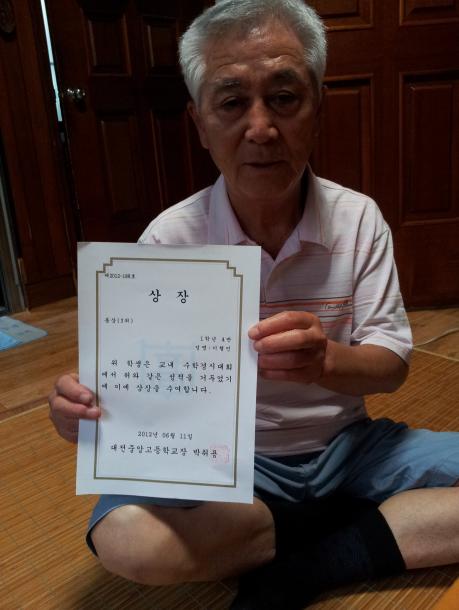 제2012-188호
상 장
동상(3위)
1학년 4반
성명:이형민
위 학생은 교내 수학경시대회
에서 위와 같은 성적을 거두었기
에 이에 상장을 수여합니다.
2012년 06월 11일
대전중앙고등학교장 박취용